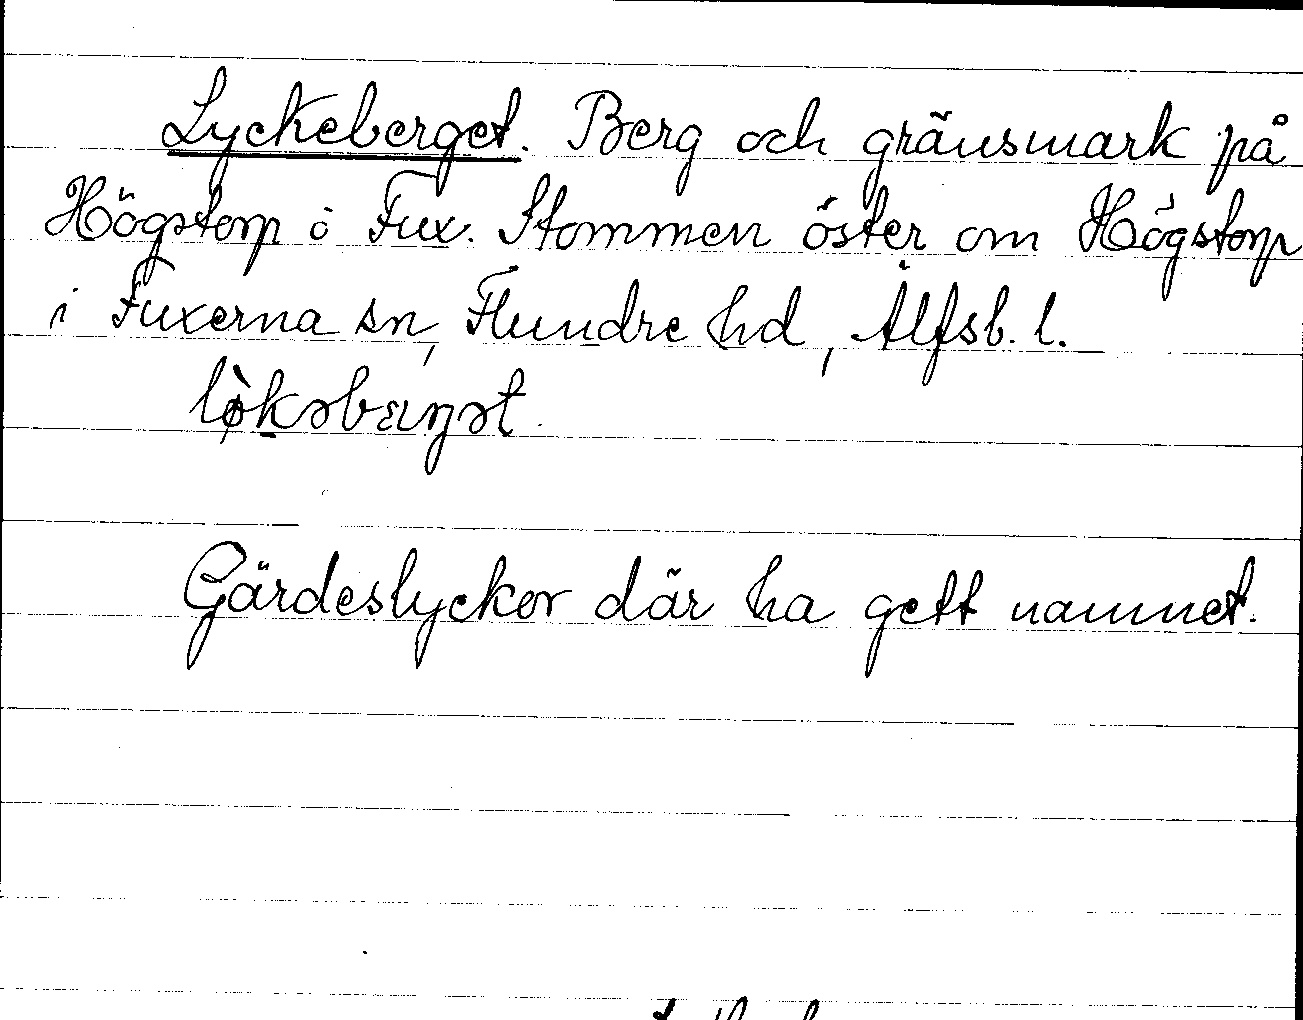 Lyckeberget. Berg och gränsmark på
Högstorp i Fux. Stommen öster om Högstorp
i Fuxerna sn, Flundre hd, Älfsb. l.
lø̀kəbærjət.
Gärdeslyckor där ha gett namnet.